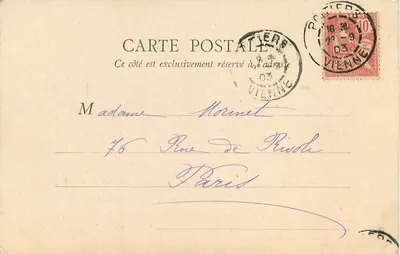 POITIERS
16 30
22 - 9
03
VIENNE
10
CARTE POSTALE
Ce côté est exclusivement réservé à l'adresse
POITIERS
03
VIENNE
Madame Morinet
76 Rue de Rivoli
Paris